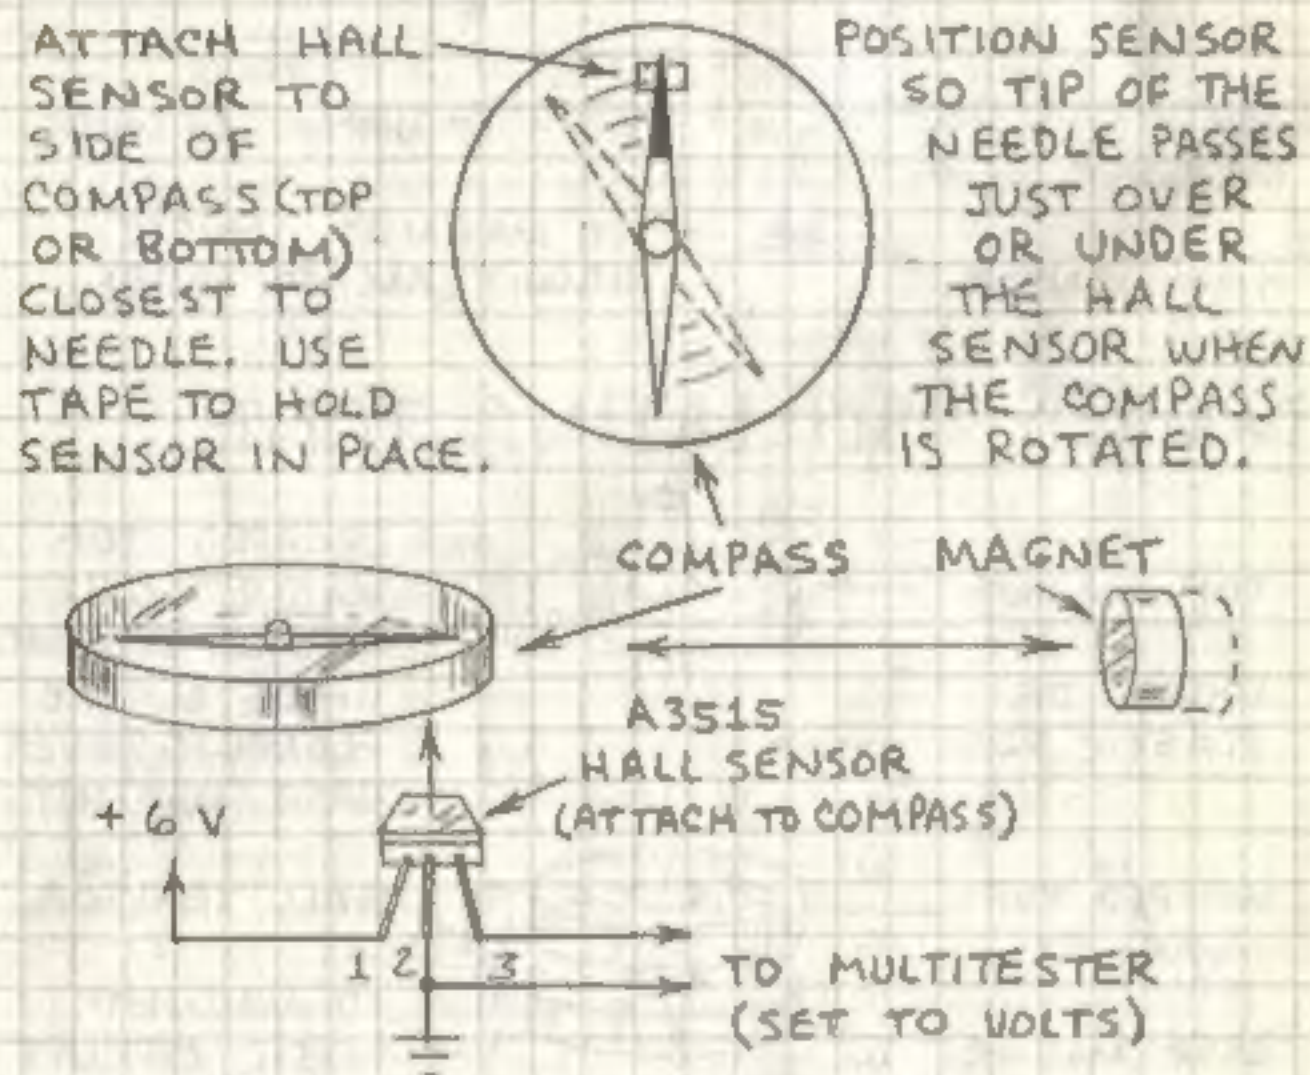 ATTACH HALL
SENSOR TO
SIDE OF
COMPASS (TOP
OR BOTTOM)
CLOSEST TO
NEEDLE. USE
TAPE TO HOLD
SENSOR IN PLACE.
POSITION SENSOR
SO TIP OF THE
NEEDLE PASSES
JUST OVER
OR UNDER
THE HALL
SENSOR WHEN
THE COMPASS
IS ROTATED.
COMPASS
MAGNET
A3515
HALL SENSOR
(ATTACH TO COMPASS)
+6V
1 2 3
TO MULTITESTER
(SET TO VOLTS)